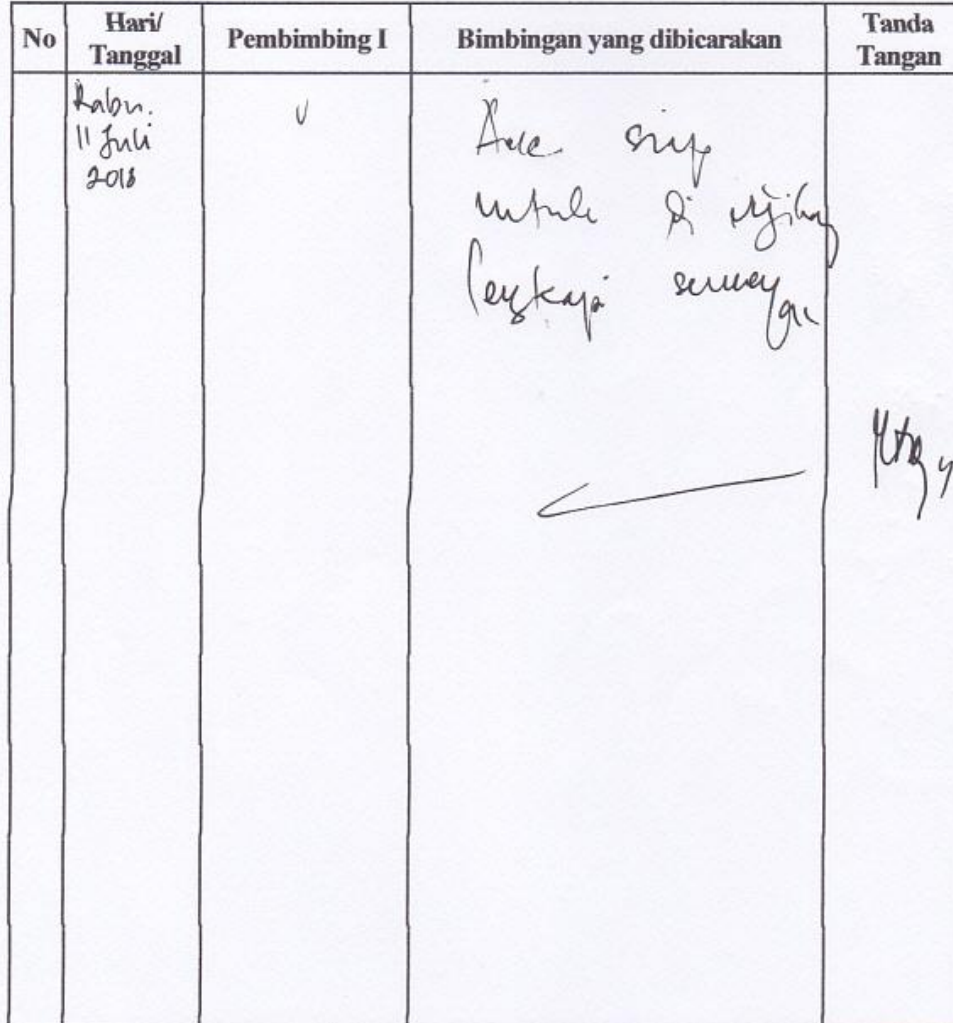 No Hari/ Tanggal Pembimbing I Bimbingan yang dibicarakan Tanda Tangan
Rabu.
11 Juli
2018
Acc siap
untuk di ujikan
lengkapi semuanya